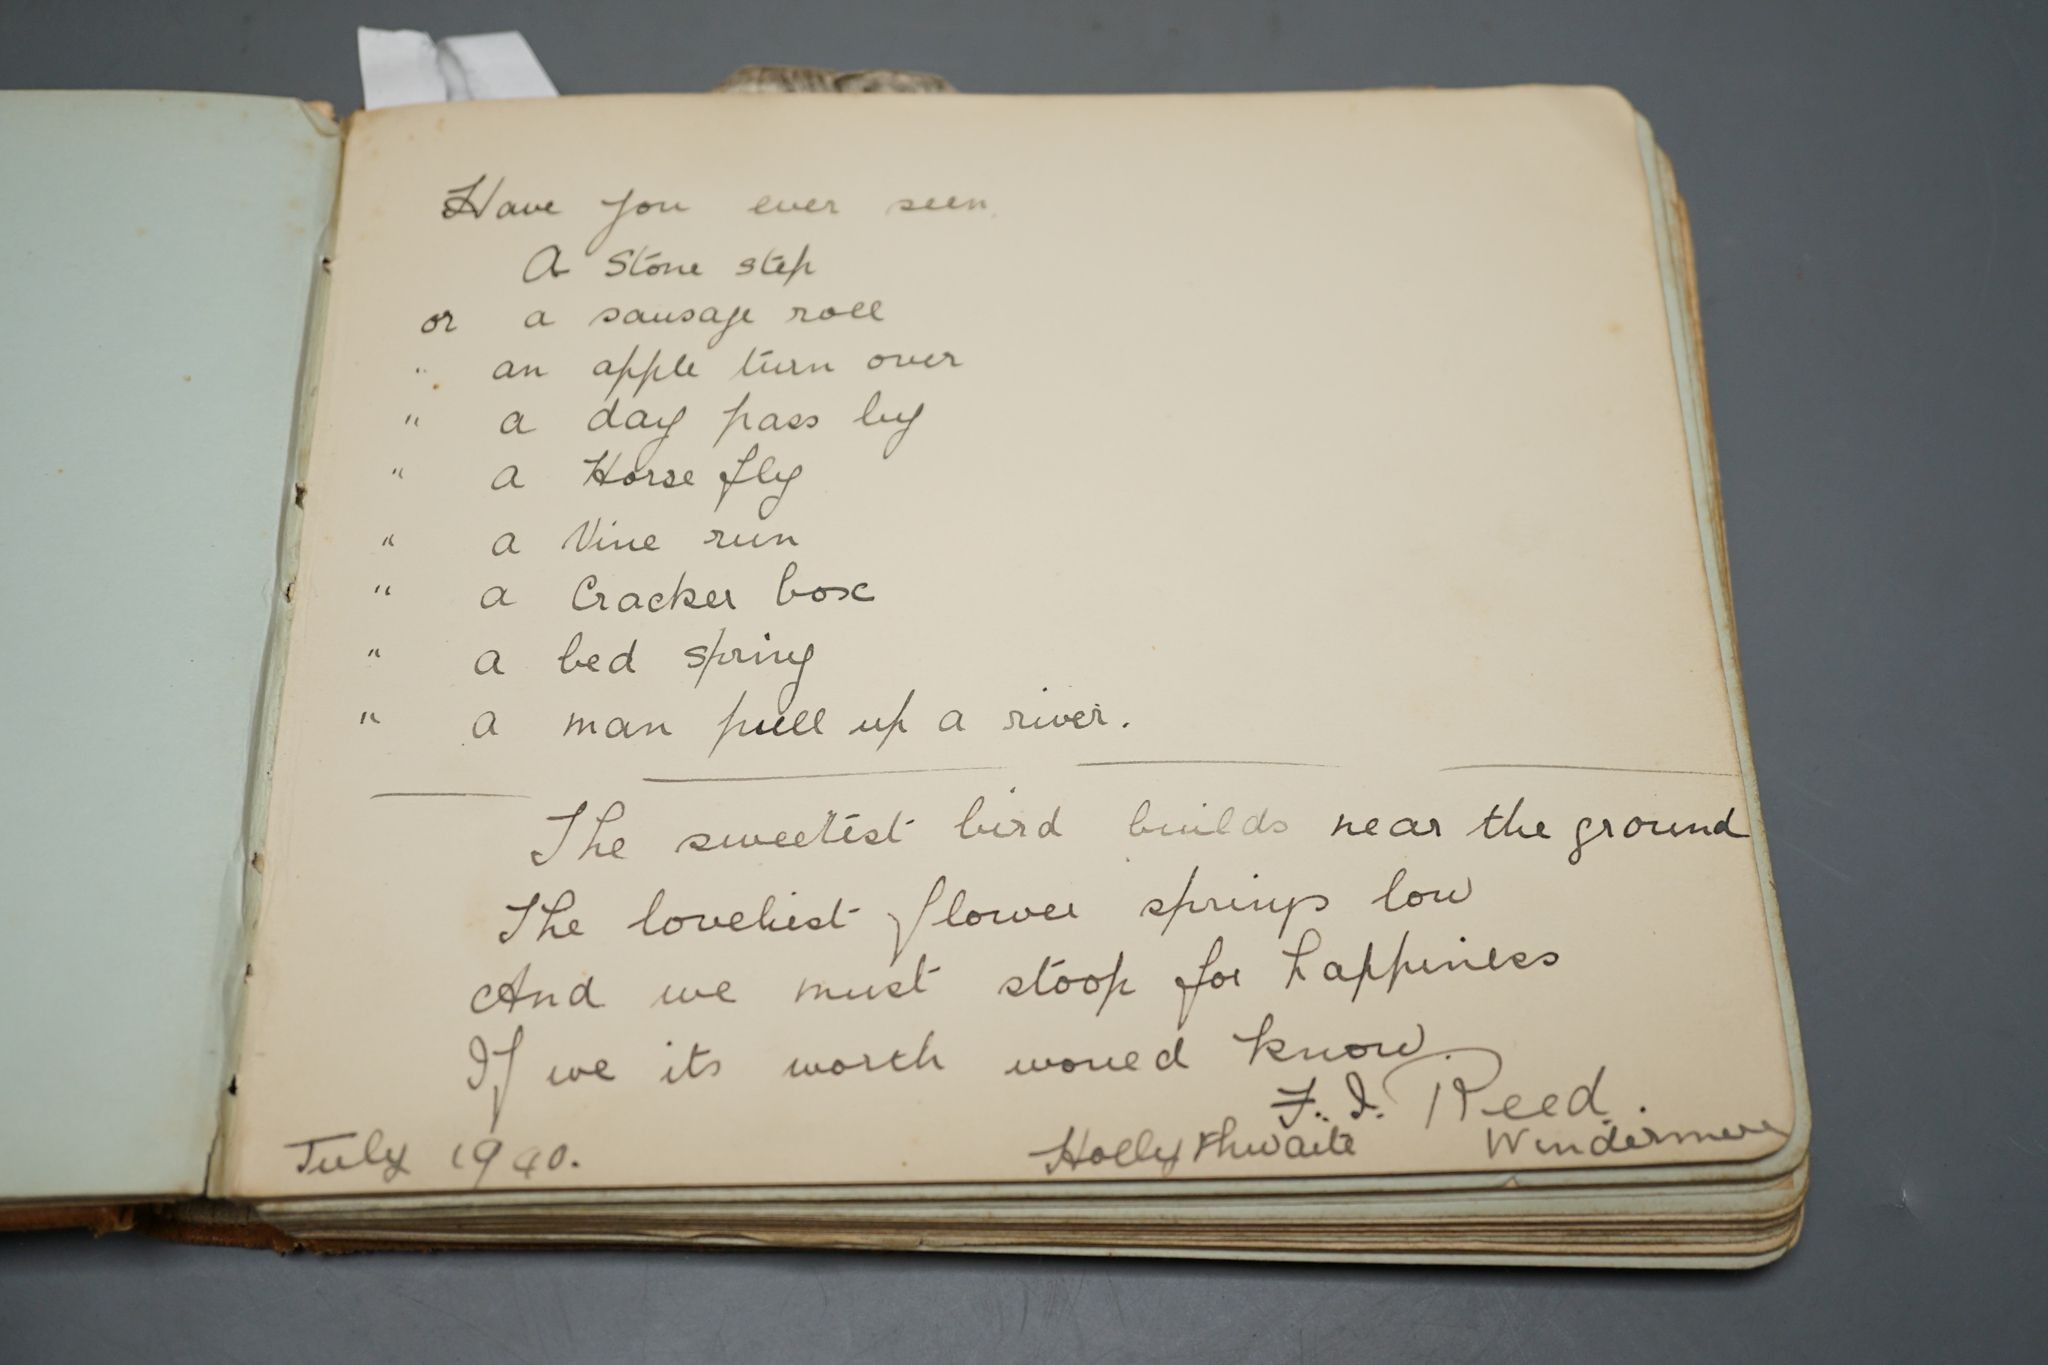 Have you ever seen
A Stone step
or a sausage roll
" an apple turn over
" a day pass by
" a Horse fly
" a Vine run
" a Cracker box
" a bed spring
" a man pull up a river.
The sweetest bird builds near the ground
The loveliest flower springs low
And we must stoop for happiness
If we its worth would know.
F. I. Reed.
July 1940. Hollythwaite Windermere